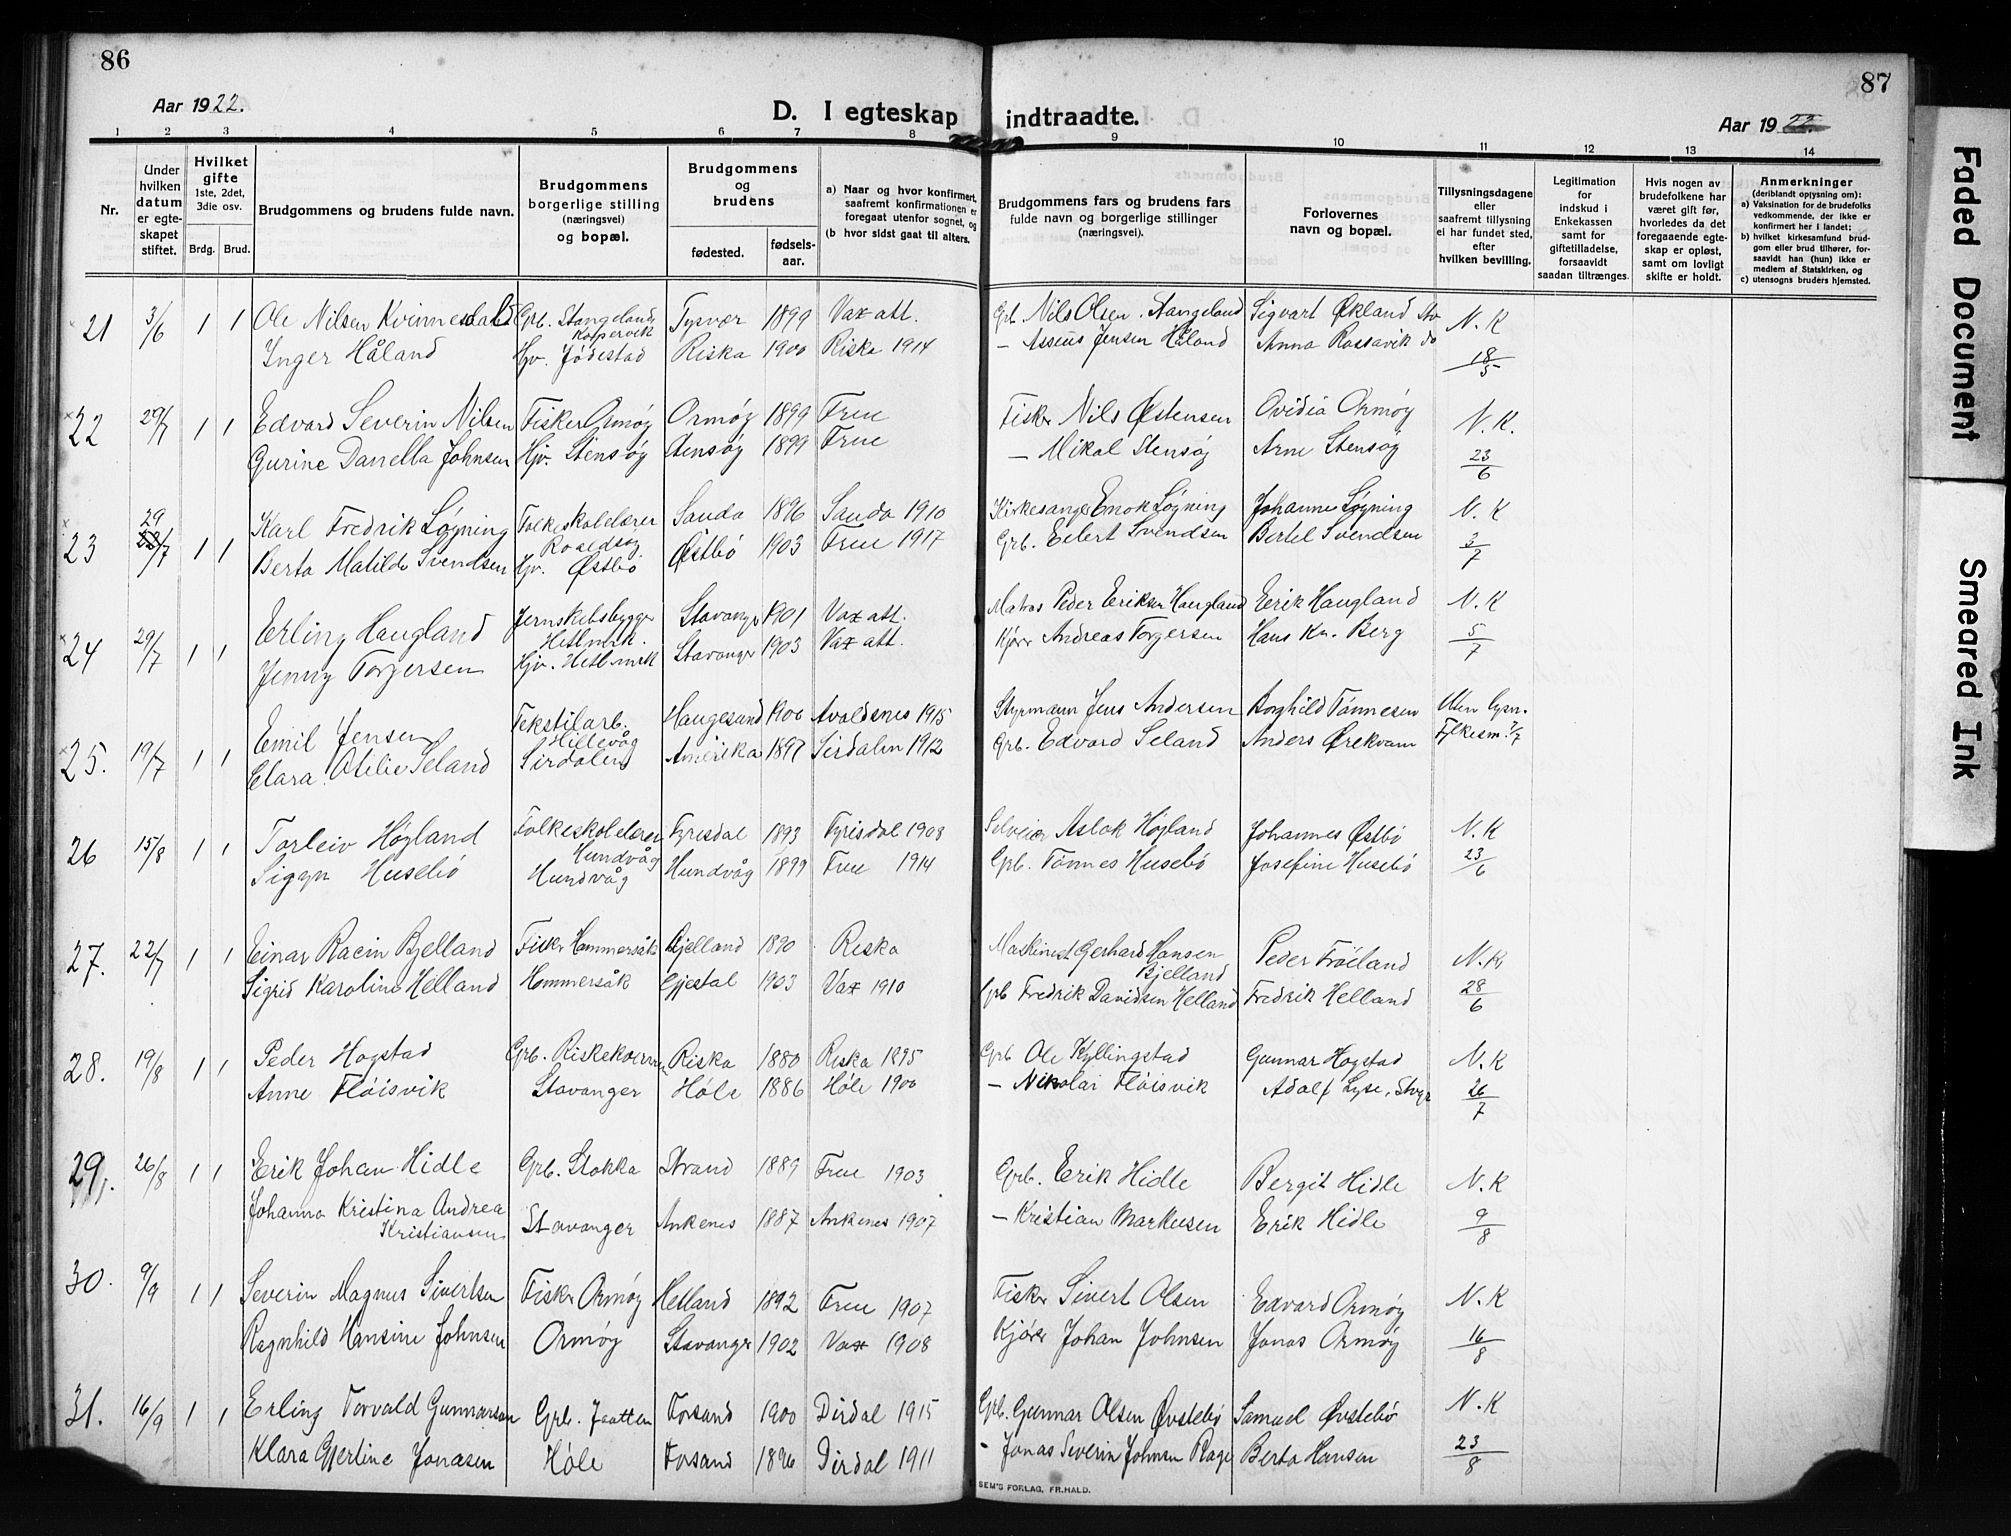 86
Aar 1922.
D. I egteskap indtraadte.
87
Aar 1922
1 2 3 4 5 6 7 8 9 10 11 12 13 14
Nr.
Under hvilken datum er egteskapet stiftet.
Hvilket gifte
1ste, 2det, 3die osv.
Brdg. Brud.
Brudgommens og brudens fulde navn.
Brudgommens borgerlige stilling (næringsvei) og bopæl.
Brudgommens og brudens
fødested. fødselsaar.
a) Naar og hvor konfirmert, saafremt konfirmationen er foregaat utenfor sognet, og
(b hvor sidst gaat til alters.
Brudgommens fars og brudens fars fulde navn og borgerlige stillinger (næringsvei).
Forlovernes navn og bopæl.
Tillysningsdagene eller saafremt tillysning ei har fundet sted, efter hvilken bevilling.
Legitimation for indskud i Enkekassen samt for giftetilladelse, forsaavidt saadan tiltrænges.
Hvis nogen av brudefolkene har været gift før, hvorledes da det foregaaende egteskap er opløst, samt om lovligt skifte er holdt.
Anmerkninger
(deriblandt oplysning om):
a) Vaksination for de brudefolks vedkommende, der ikke er konfirmert her i landet;
b) hvilket kirkesamfund brudgom eller brud tilhører, forsaavidt han (hun) ikke er medlem af Statskirken, og
c) utensogns bruders hjemsted.
21 3/6 1 1 Ole Nilsen Kvinnesland Grb. Stangeland, Kopervik Tysvær 1899 Vax att. Grb. Nils Olsen Stangeland Sigvart Økland N. K
Inger Håland Hjv. Jødestad Riska 1900 Riska 1914 — Jensen Håland Anna Rossavik do 18/5
22 29/7 1 1 Edvard Severin Nilsen Fisker Ormøy Ormøy 1899 Frue Fisker Nils Østensen Ovidia Ormøy N. K.
Gurine Danella Johnsen Hjv. Stensøy Stensøy 1899 Frue — Mikal Stensøy Arne Stensøy 23/6
23 29/7 1 1 Karl Fredrik Løyning Folkeskolelærer Sauda 1896 Sauda 1910 Kirkesanger Løyning Johanne Løyning N. K
Berta Matilde Svendsen Hjv. Østbø Østbø 1903 Frue 1917 Grb. Eilert Svendsen Bertel Svendsen 3/7
24 29/7 1 1 Erling Haugland Jernskibsbygger Hetlmrk. Stavanger 1901 Vax att. Matros Peder Eriksen Haugland Erik Haugland N. K
Jenny Torgersen Hjv. Hetlmrk Stavanger 1903 Vax att. Kjører Andreas Torgersen Hans Kn. Berg 5/7
25. 19/7 1 1 Emil Jensen Tekstilarb. Hillevåg Haugesund 1900 Avaldsnes 1915 Styrmann Jens Andersen Borghild Tønnesen Uten lysn.
Clara Otilie Seland Sirdalen Amerika 1897 Sirdalen 1912 Grb. Edvard Seland Anders Ørekvam Fylkesm. 7/7
26 15/8 1 1 Torleiv Høgland Folkeskolelærer Hundvåg Fyrisdal 1893 Fyrisdal 1908 Selveier Aslak Høgland Johannes Østbø N. K
Sigyn Husebø Hundvåg Hundvåg 1899 Frue 1914 Grb. Tønnes Husebø Josefine Husebø 23/6
27. 22/7 1 1 Einar Racin Bjelland Fisker Hommersåk Bjelland 1890 Riska Maskinist Gerhard Hansen Bjelland Peder Frøiland N. K.
Sigrid Karoline Helland Hommersåk Gjestal 1903 Vax 1910 Grb Fredrik Davidsen Helland Fredrik Helland 28/6
28. 19/8 1 1 Peder Hogstad Grb. Riska 1880 Riska 1895 Grb Ole Kyllingstad Gunnar Hogstad N. K
Anne Fløisvik Stavanger Høle 1886 Høle 1900 — Nikolai Fløisvik Adolf Lyse, Stvgr 26/7
29. 26/8 1 1 Erik Johan Hidle Grb. Stokka Strand 1889 Frue 1903 Grb. Erik Hidle Bergit Hidle N. K
Johanna Kristina Andrea Kristiansen Stavanger Ankenes 1887 Ankenes 1907 — Kristian Markusen Erik Hidle 9/8
30. 9/9 1 1 Severin Magnus Sivertsen Fisker Ormøy Hetland 1892 Frue 1907 Fisker Sivert Olsen Edvard Ormøy N. K
Ragnhild Hansine Johnsen Ormøy Stavanger 1902 Vax 1908 Kjører Johan Johnsen Jonas Ormøy 16/8
31. 16/9 1 1 Erling Torvald Gunnarson Grb. Jaatten Forsand 1900 Dirdal 1915 Grb. Gunnar Olsen Øvstebø Samuel Øvstebø N. K
Klara Gjertine Jonasen Høle Forsand 1896 Dirdal 1911 - Jonas Severin Johnsen Berta Hansen 23/8
SEM'S FORLAG, FR.HALD.
Faded Document
Smeared Ink